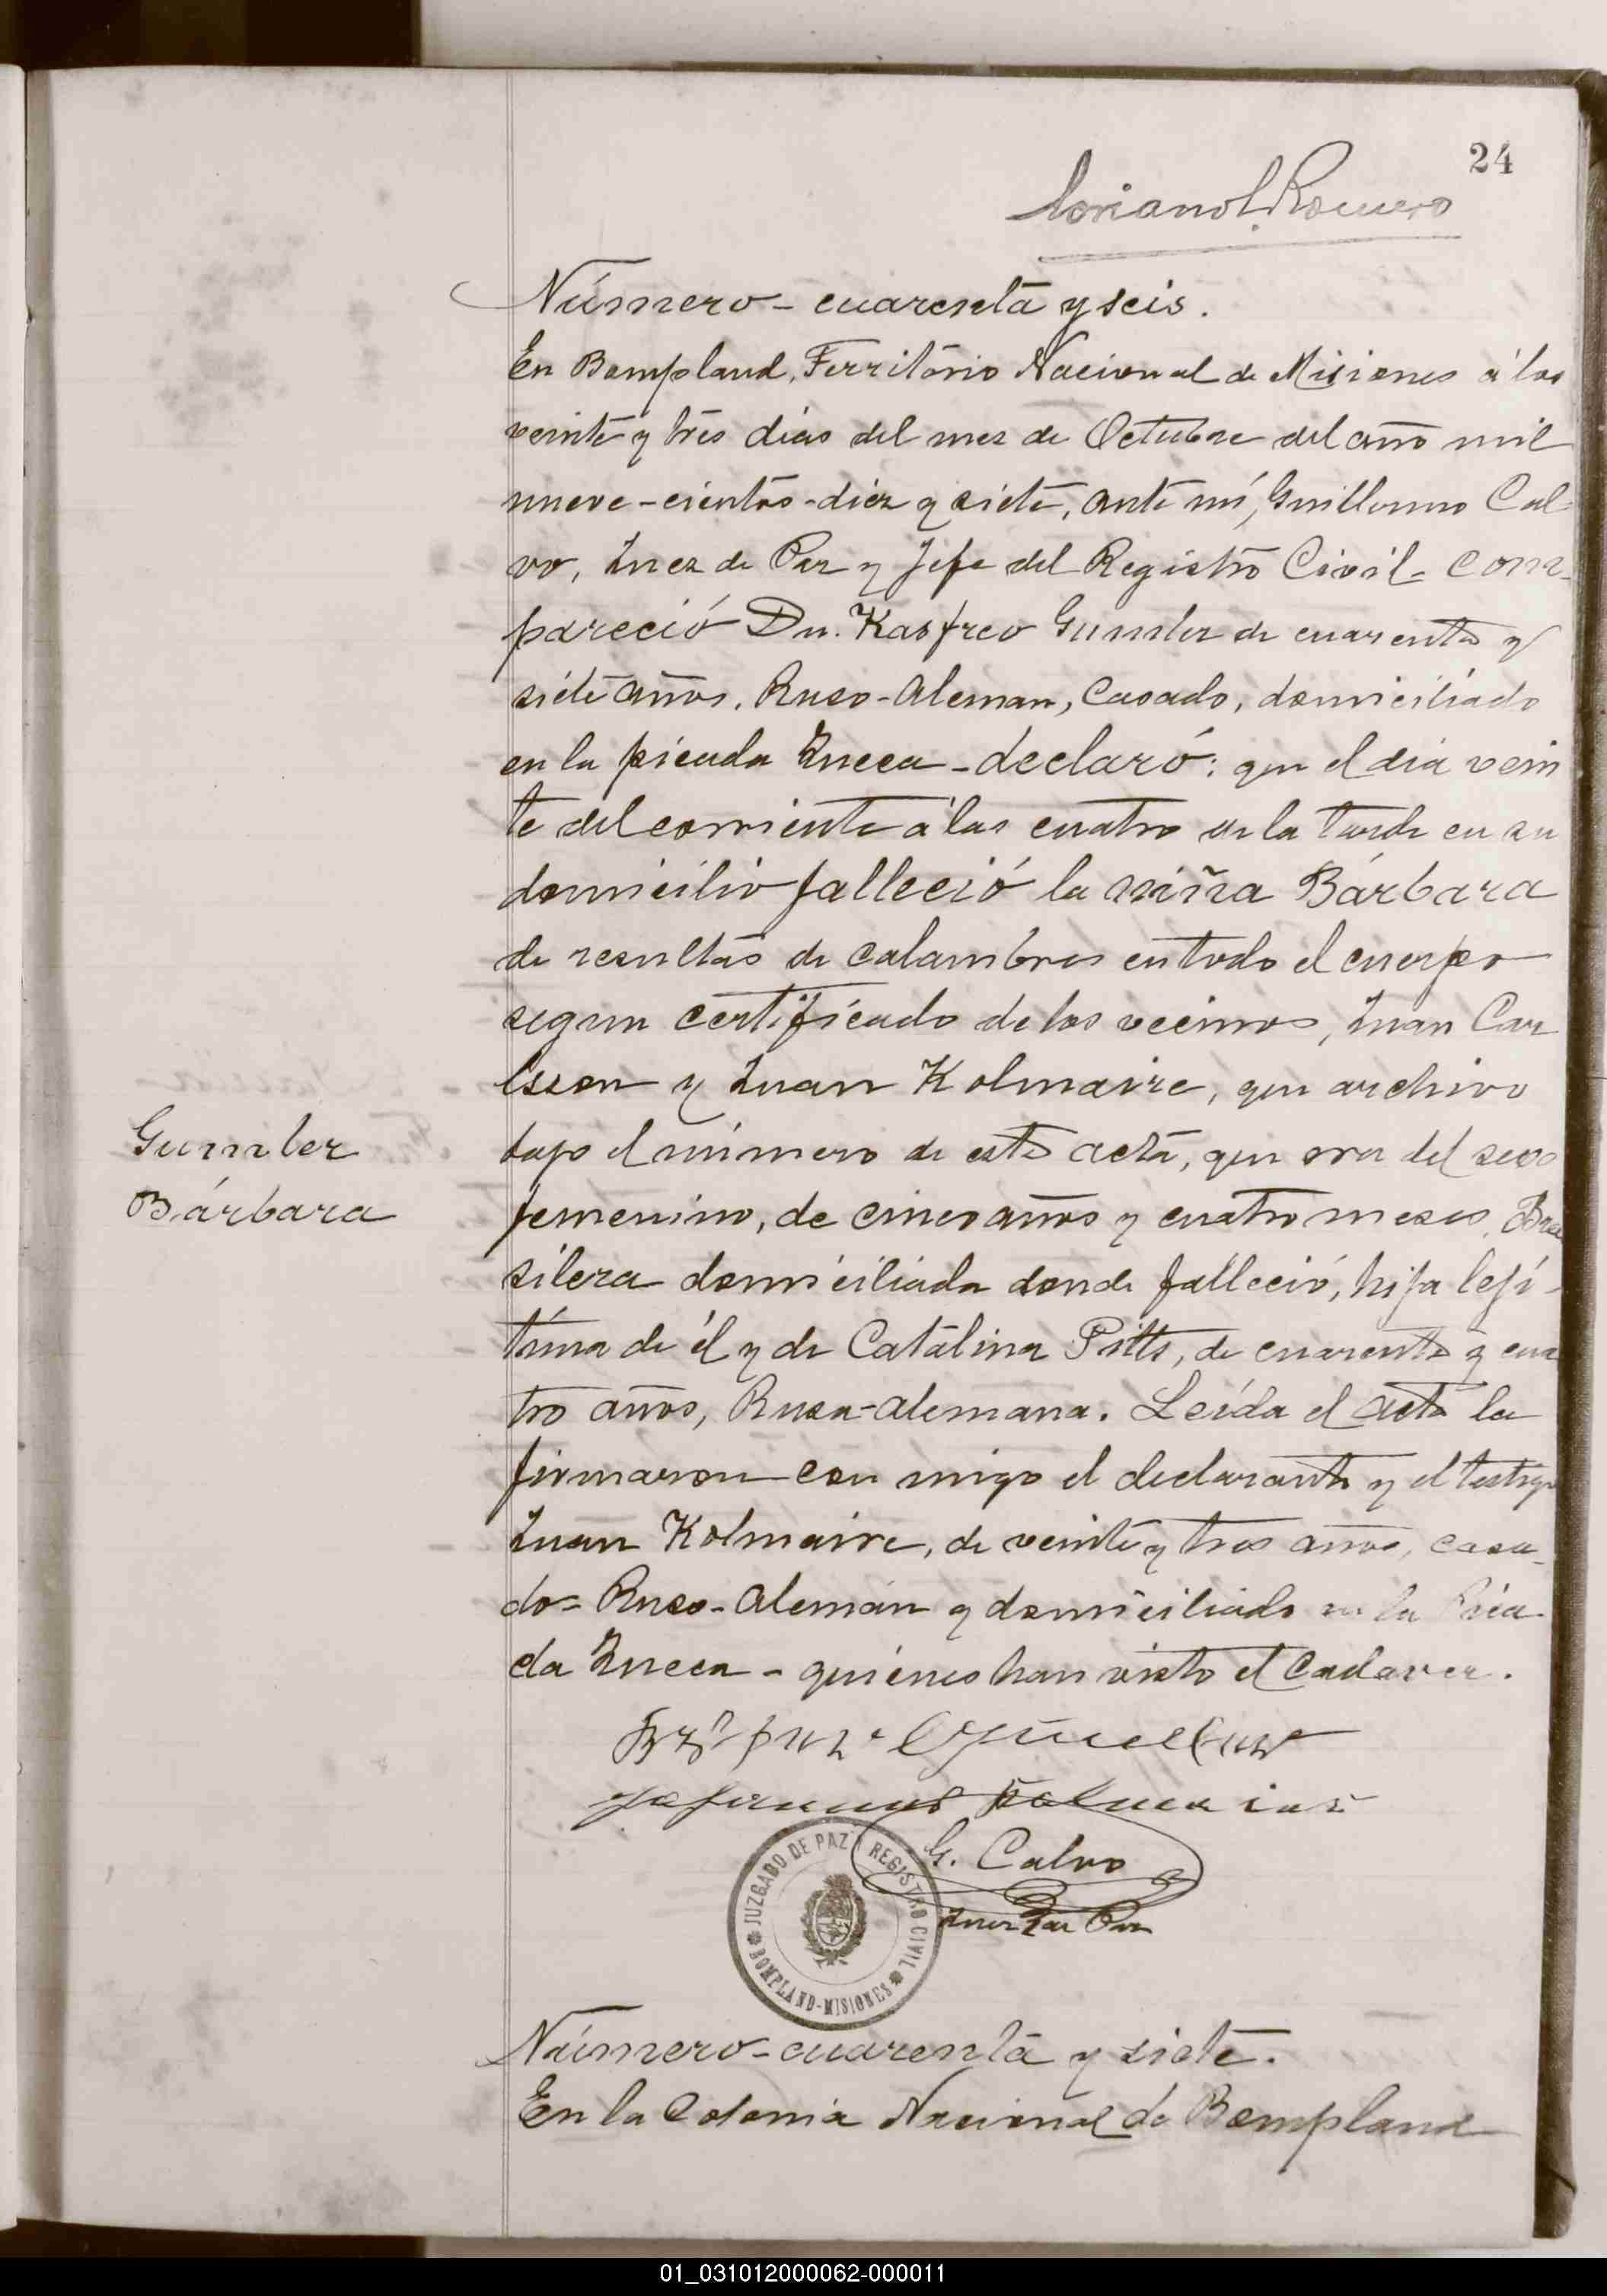 24
Soriano L. Romero
Número - cuarenta y seis.
En Bompland, Territorio Nacional de Misiones á los
veinte y tres dias del mes de Octubre del año mil
nueve-cientos-diez y siete, ante mí, Guillermo Cal
vo, Juez de Paz y Jefe del Registro Civil - com-
pareció Dn. Kasfreo Gumler de cuarenta y
siete años, Ruso-Aleman, Casado, domiciliado
en la picada Sueca - declaró: que el dia vein
te del corriente á las cuatro de la tarde en su
domicilio falleció la niña Bárbara
de resultas de calambres en todo el cuerpo
segun certificado de los vecinos, Juan Car
lsson y Juan Kolmaire, que archivo
bajo el número de esta acta, que era del sexo
femenino, de cinco años y cuatro meses, Bra
silera domiciliada donde falleció, hija leji-
tima de él y de Catalina Pitts, de cuarenta y cua
tro años, Rusa-alemana. Leída el acta la
firmaron con migo el declarante y el testigo
Juan Kolmaire, de veinte y tres años, casa-
do = Ruso-Alemán y domiciliado en la Pica-
da Sueca - quiénes han visto el Cadaver.
Gumler
Bárbara
G. Calvo
Juez de Paz
JUZGADO DE PAZ Y REGISTRO CIVIL
BOMPLAND-MISIONES
Número - cuarenta y siete.
En la Colonia Nacional de Bompland
01_031012000062-000011